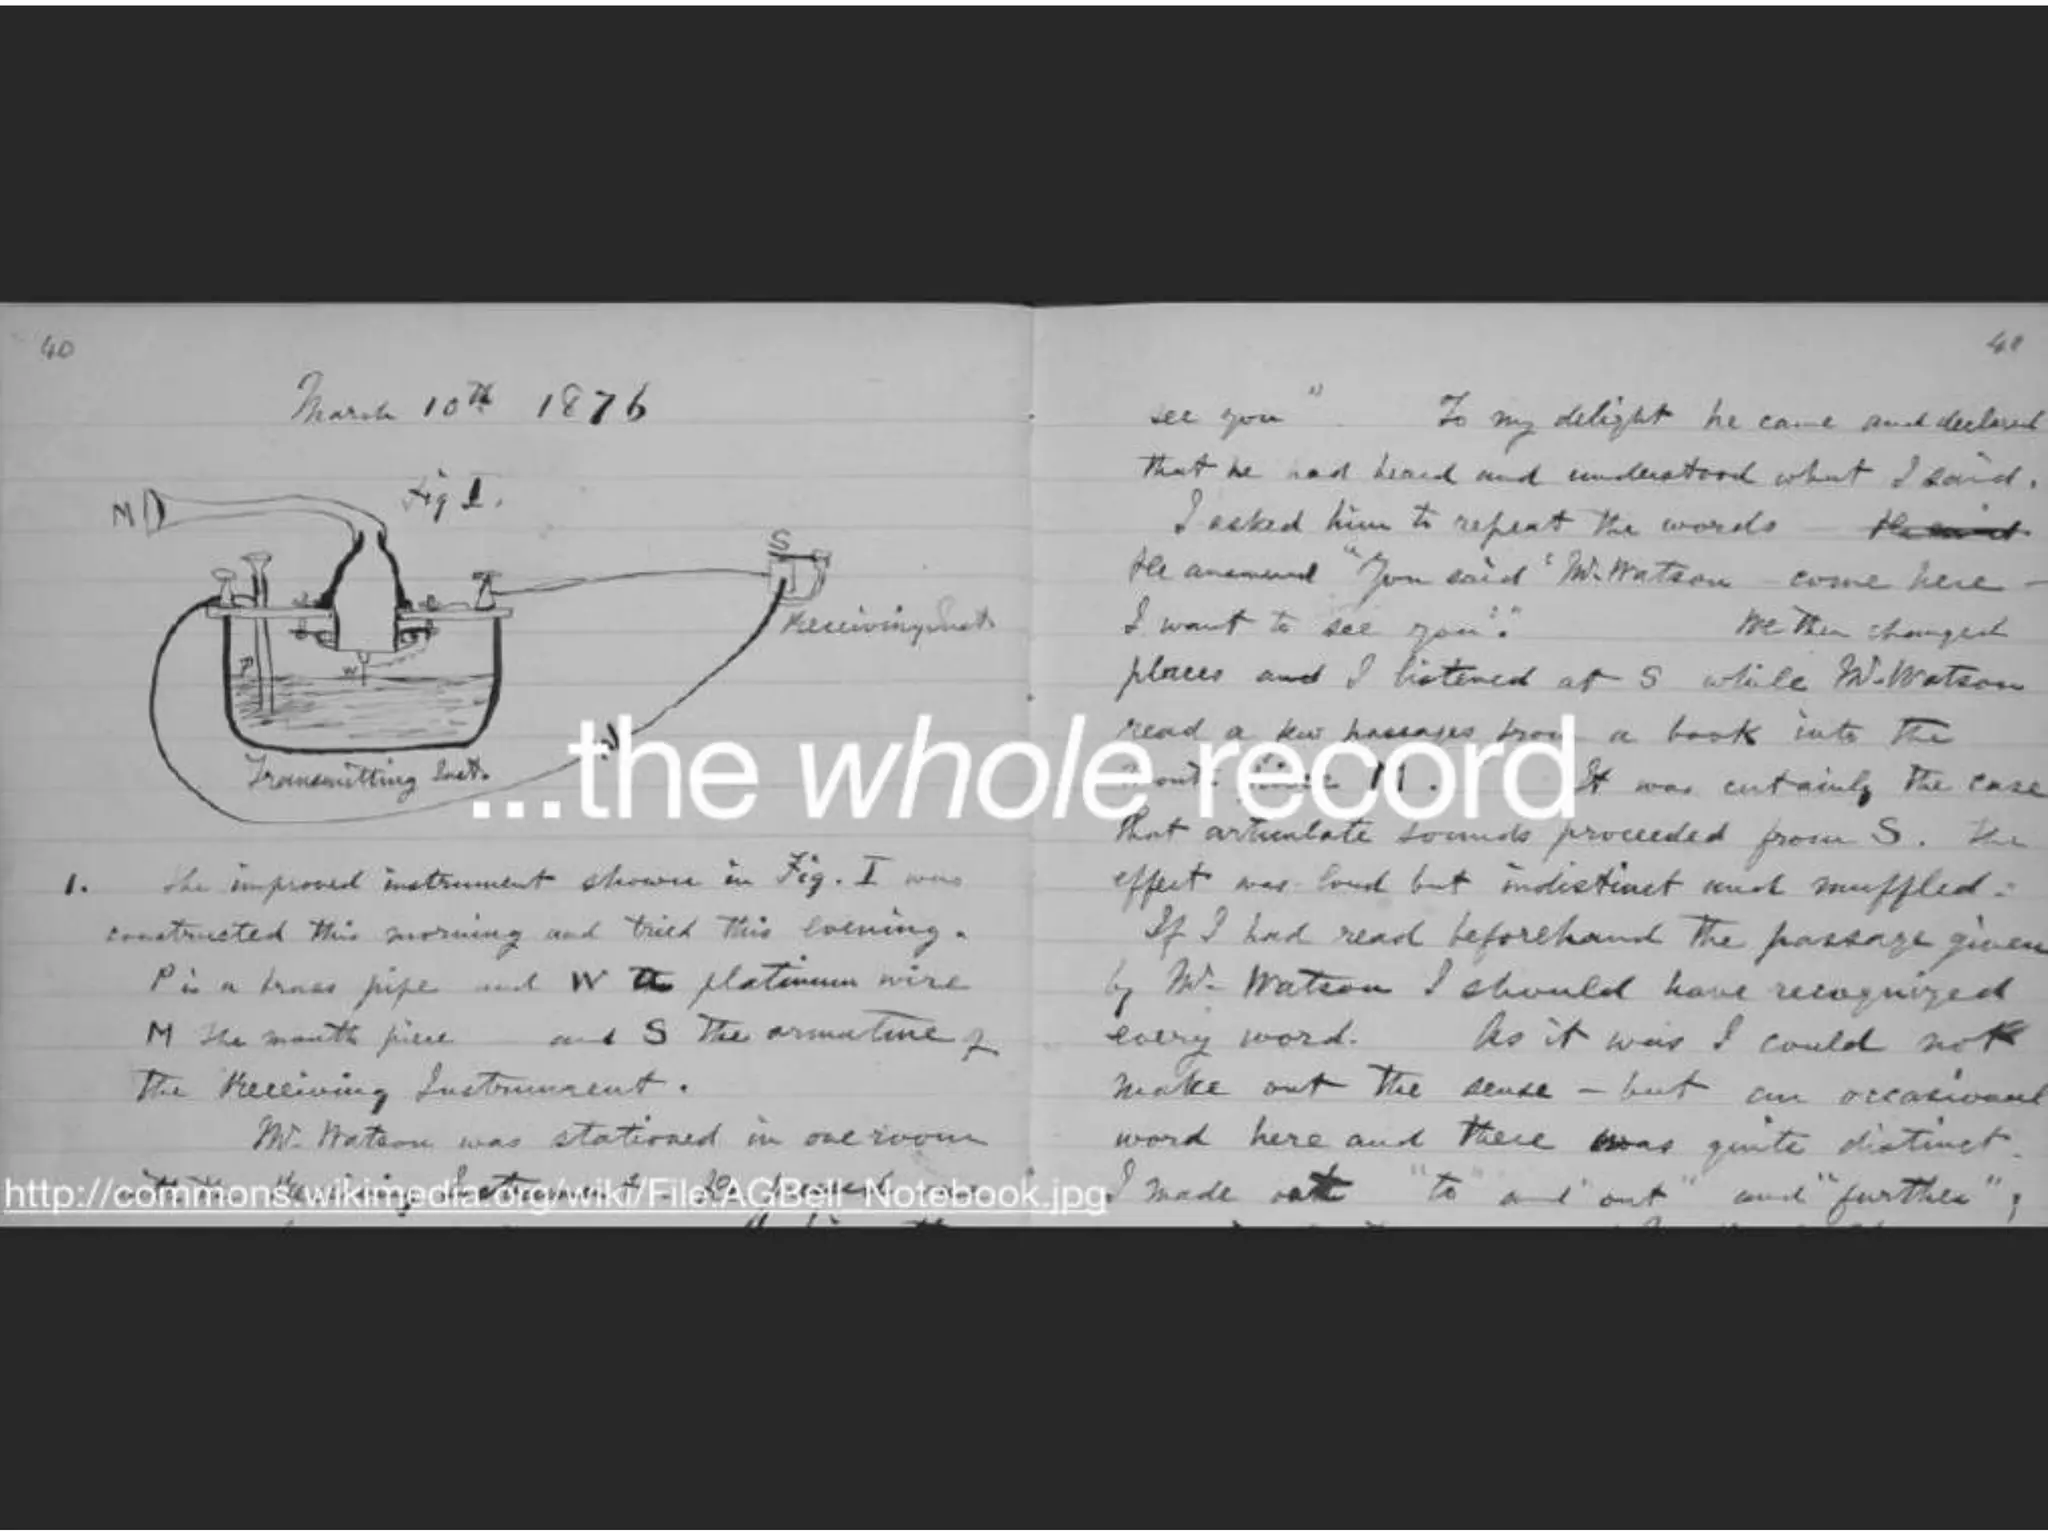 40
March 10th 1876
Fig I.
M
S
Receiving Inst.
P
W
Transmitting Inst.
1. The improved instrument shown in Fig. I was
constructed this morning and tried this evening.
P is a brass pipe and W a platinum wire
M the mouth piece and S the armature of
the Receiving Instrument.
Mr. Watson was stationed in one room
with the Receiving Instrument.
41
see you" To my delight he came and declared
that he had heard and understood what I said.
I asked him to repeat the words
He answered "You said 'Mr. Watson - come here -
I want to see you'." We then changed
places and I listened at S while Mr. Watson
read a few passages from a book into the
mouth piece M. It was certainly the case
that articulate sounds proceeded from S. The
effect was loud but indistinct and muffled.
If I had read beforehand the passage given
by Mr. Watson I should have recognized
every word. As it was I could not
make out the sense - but an occasional
word here and there was quite distinct.
I made out "to" and "out" and "further";
...the whole record
http://commons.wikimedia.org/wiki/File:AGBell_Notebook.jpg